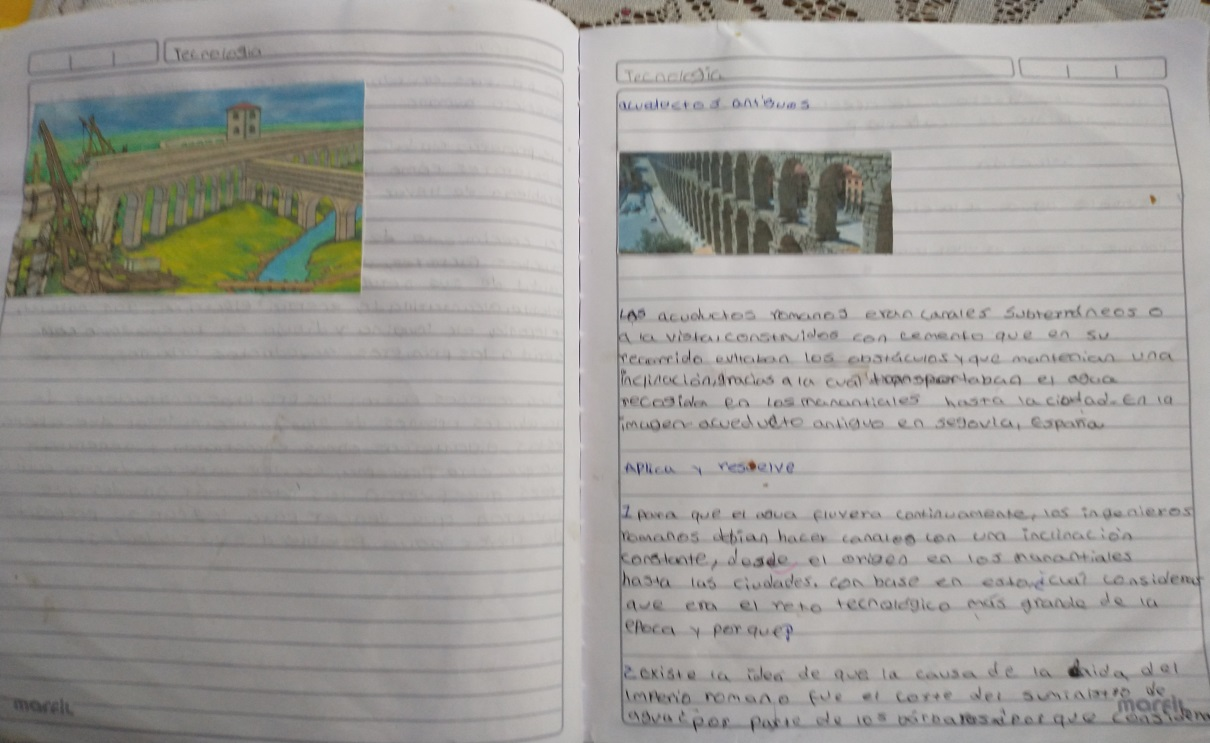 Tecnologia
morfil
Tecnologia
acueductos antiguos
Los acueductos romanos eran canales subterráneos o
a la vista, construidos con cemento que en su
recorrido evitaban los obstáculos y que mantenian una
inclinación, gracias a la cual transportaban el agua
recogida en los manantiales hasta la ciudad. En la
imagen acueducto antiguo en segovia, España
Aplica y resuelve
1 para que el agua fluyera continuamente, los ingenieros
romanos debian hacer canales con una inclinación
constante, desde el origen en los manantiales
hasta las ciudades. con base en esto ¿cual consideras
que era el reto tecnológico más grande de la
epoca y por que?
2 existe la idea de que la causa de la caida del
imperio romano fue el corte del suministro de
agua por parte de los bárbaros ¿por que consideran
morfil